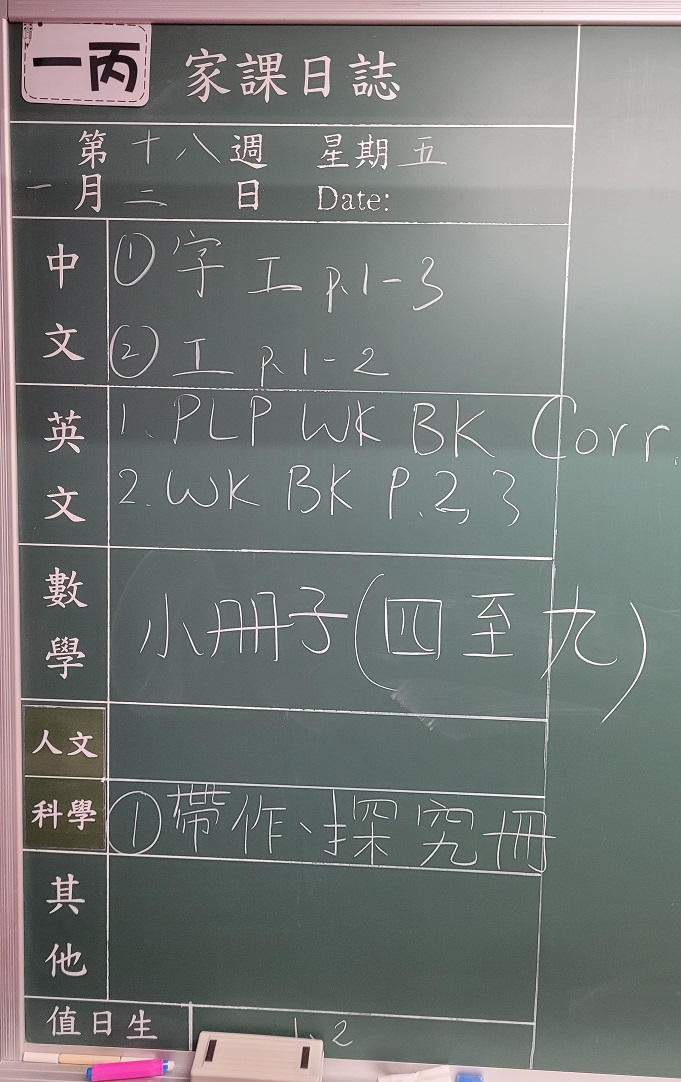 一丙 家課日誌
第十八週 星期五
一月二日 Date:
中文 ①字 工 p.1-3
②工 p.1-2
英文 1. PLP WK BK Corr.
2. WK BK P.2,3
數學 小冊子(四至九)
人文
科學 ①帶作、探究冊
其他
值日生 1, 2